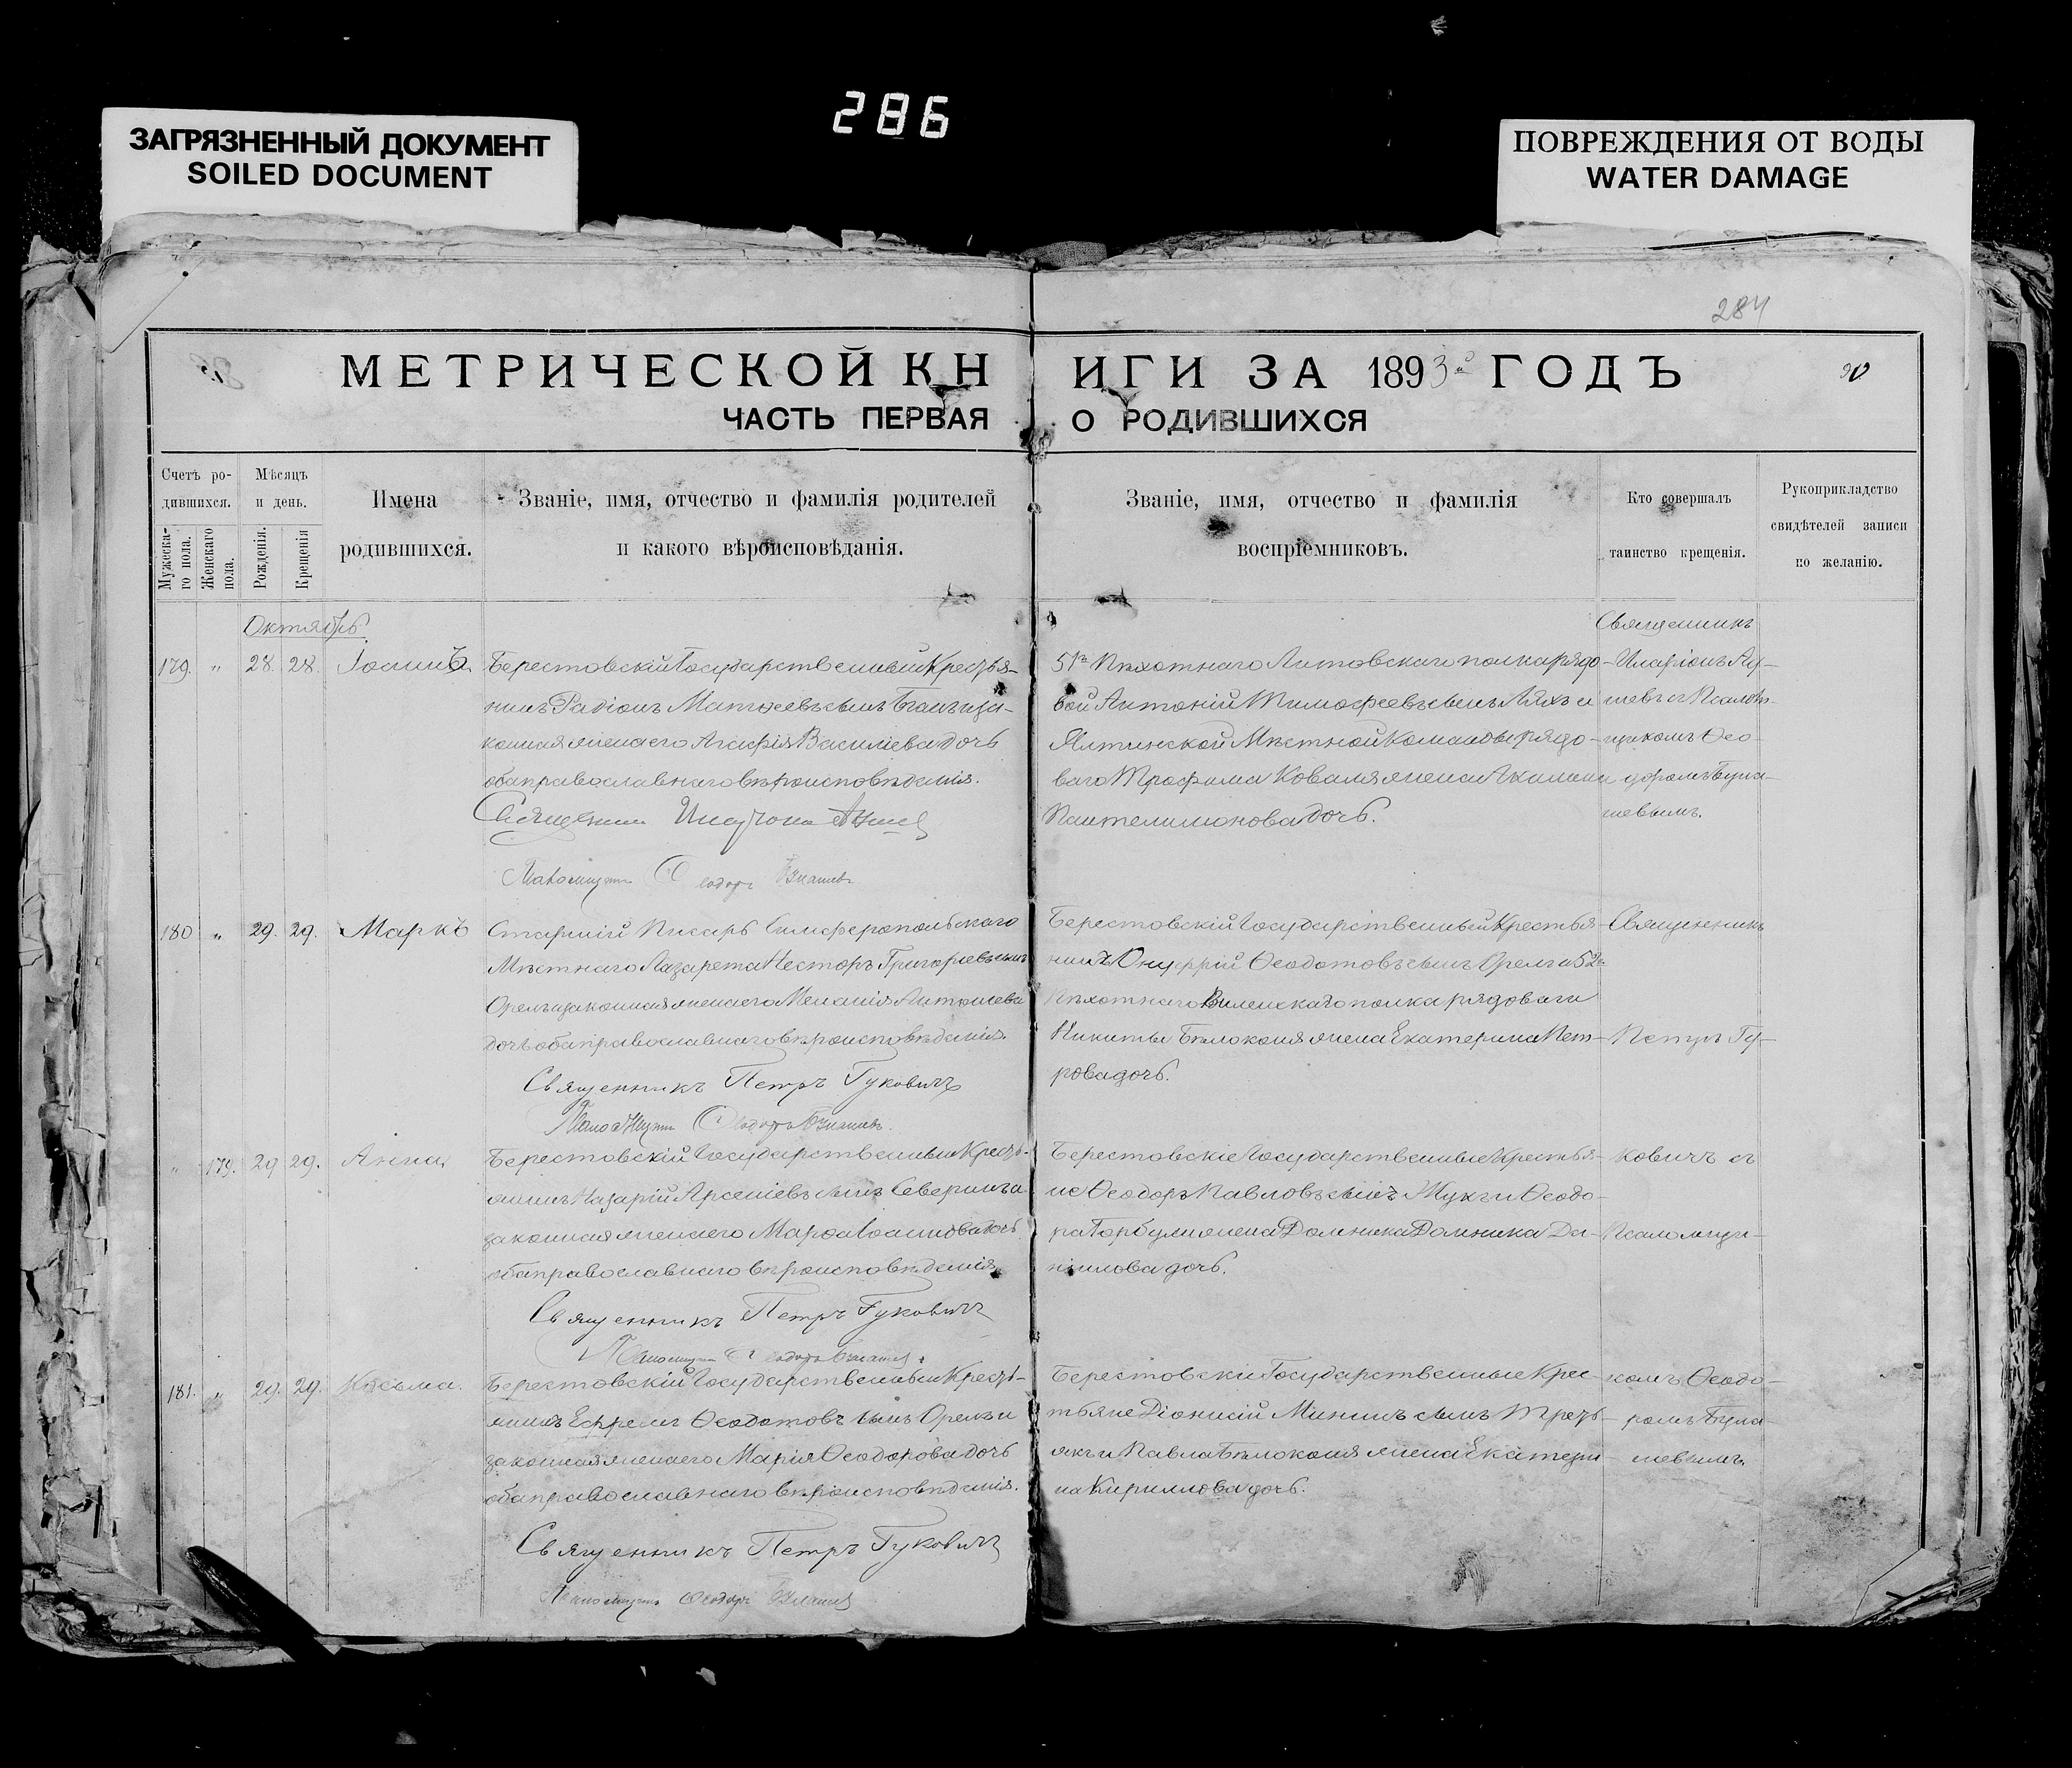 286
ЗАГРЯЗНЕННЫЙ ДОКУМЕНТ
SOILED DOCUMENT
ПОВРЕЖДЕНИЯ ОТ ВОДЫ
WATER DAMAGE
284
МЕТРИЧЕСКОЙ КНИГИ ЗА 1893й ГОДЪ
ЧАСТЬ ПЕРВАЯ О РОДИВШИХСЯ
Счетъ ро-
дившихся.
Мужеска-
го пола.
Женскаго
пола.
Мѣсяцъ
и день.
Рожденія.
Крещенія
Имена
родившихся.
Званіе, имя, отчество и фамилія родителей
и какого вѣроисповѣданія.
Званіе, имя, отчество и фамилія
воспріемниковъ.
Кто совершалъ
таинство крещенія.
Рукоприкладство
свидѣтелей записи
по желанію.
Октябрь
179. " 28. 28. Іоаннъ
Берестовскій Государственный Крестья-
нинъ Радіонъ Матѳеевъ сынъ и за-
конная жена его Агафія Василіева дочь
оба православнаго вѣроисповѣданія.
Священникъ Иларіонъ
Псаломщикъ Ѳеодоръ
51го Пѣхотнаго Литовскаго полка рядо-
вой Антоній Тимофеевъ сынъ Ляхъ и
Ялтинской Мѣстной Команды рядо-
ваго Трофима Коваля жена Акилина
Пантелимонова дочь.
Священникъ
Иларіонъ
шевъ съ Псалом-
щикомъ Ѳео-
доромъ
шевымъ.
180 " 29. 29. Маркъ
Старшій Писарь Симферопольскаго
Мѣстнаго Лазарета Несторъ Григорьевъ сынъ
Орелъ и законная жена его Меланія Антоніева
дочь оба православнаго вѣроисповѣданія.
Священникъ Петръ Гуковичъ
Псаломщикъ Ѳеодоръ
Берестовскій Государственный Крестья-
нинъ Онуфрій Ѳеодотовъ сынъ Орелъ и 52го
Пѣхотнаго Виленскаго полка рядоваго
Никиты Бѣлоконя жена Екатерина Пет-
рова дочь.
Священникъ
Петръ Гу-
" 179. 29 29. Анна
Берестовскій Государственный Кресть-
янинъ Назарій Арсеніевъ сынъ Северинъ и
законная жена его Марѳа Іоаннова дочь
оба православнаго вѣроисповѣданія
Священникъ Петръ Гуковичъ
Псаломщикъ Ѳеодоръ
Берестовскіе Государственные Крестья-
не Ѳеодоръ Павловъ сынъ Жукъ и Ѳеодо-
ра Горбули жена Домника Домника Да-
ніилова дочь.
ковичъ съ
Псаломщи-
181. " 29. 29. Косьма.
Берестовскій Государственный Кресть-
янинъ Ефремъ Ѳеодотовъ сынъ Орелъ и
законная жена его Марія Ѳеодорова дочь
оба православнаго вѣроисповѣданія.
Священникъ Петръ Гуковичъ
Псаломщикъ Ѳеодоръ
Берестовскіе Государственные Крес-
тьяне Діонисій Мининъ сынъ Треть-
якъ и Павла Бѣлоконя жена Екатери-
на Кириллова дочь.
комъ Ѳеодо-
ромъ
шевымъ.